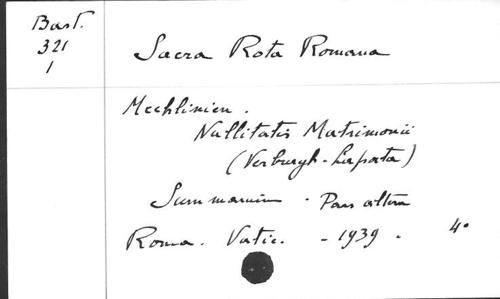 Bast.
321
1
Sacra Rota Romana
Mechlinien.
Nullitatis Matrimonii
(Verburgh - Laporta)
Summarium - Pars altera
Roma. Vatic. - 1939 - 4°